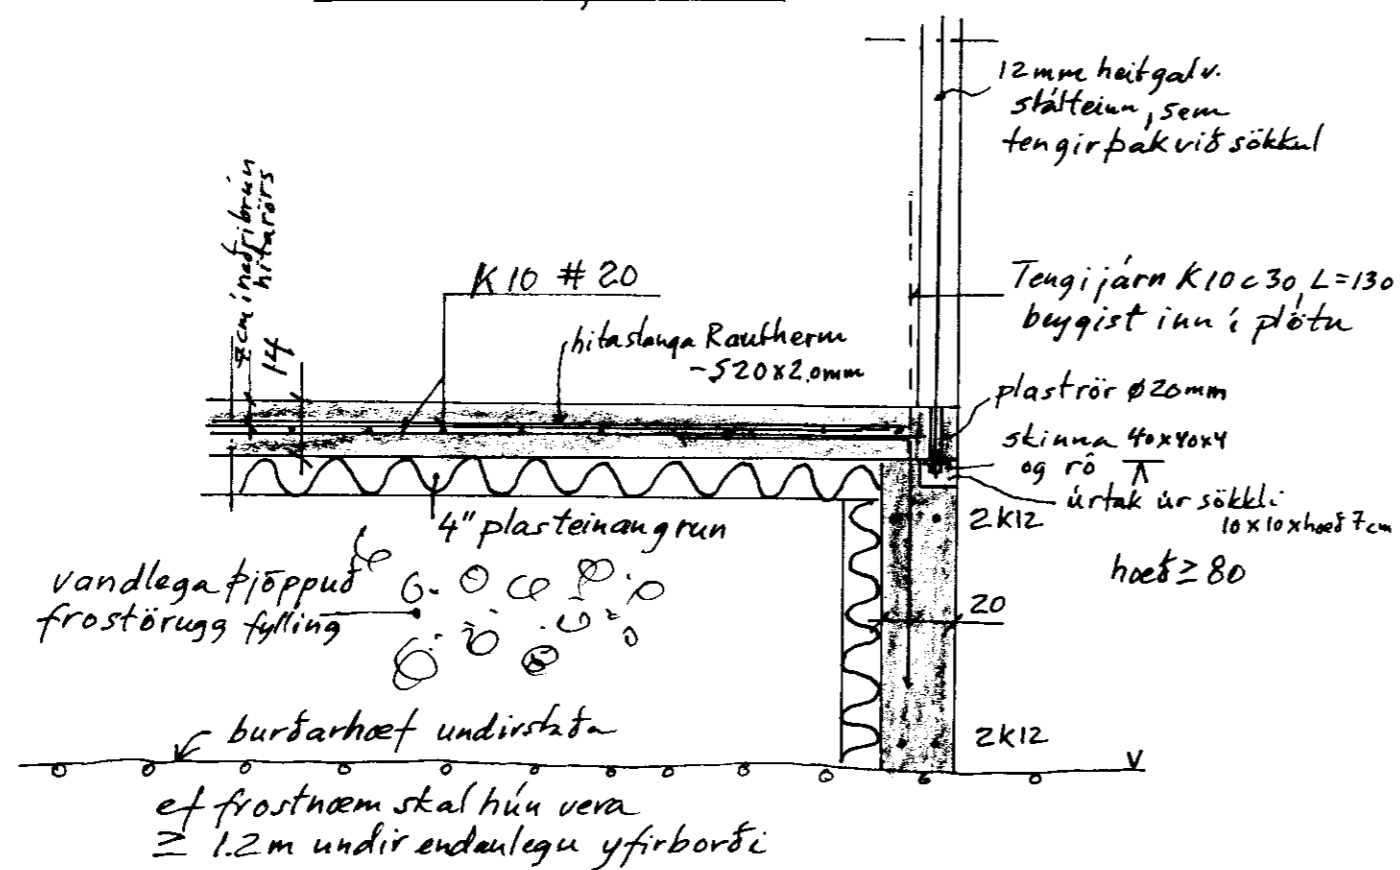 12mm heitgalv.
stálteinn, sem
tengir þak við sökkul
7cm í neðri brún
hitarörs
14
K10 # 20
hitaslanga Rautherm
-S 20x2.0mm
Tengijárn K10 c30, L=130
beygist inn í plötu
plaströr ø20mm
skinna 40x40x4
og ró
úrtak úr sökkli
10x10xhæð 7cm
4" plasteinangrun
2K12
hæð ≥ 80
vandlega þjöppuð
frostörugg fylling
20
burðarhæf undirstaða
2K12
V
ef frostnæm skal hún vera
≥ 1.2m undir endanlegu yfirborði